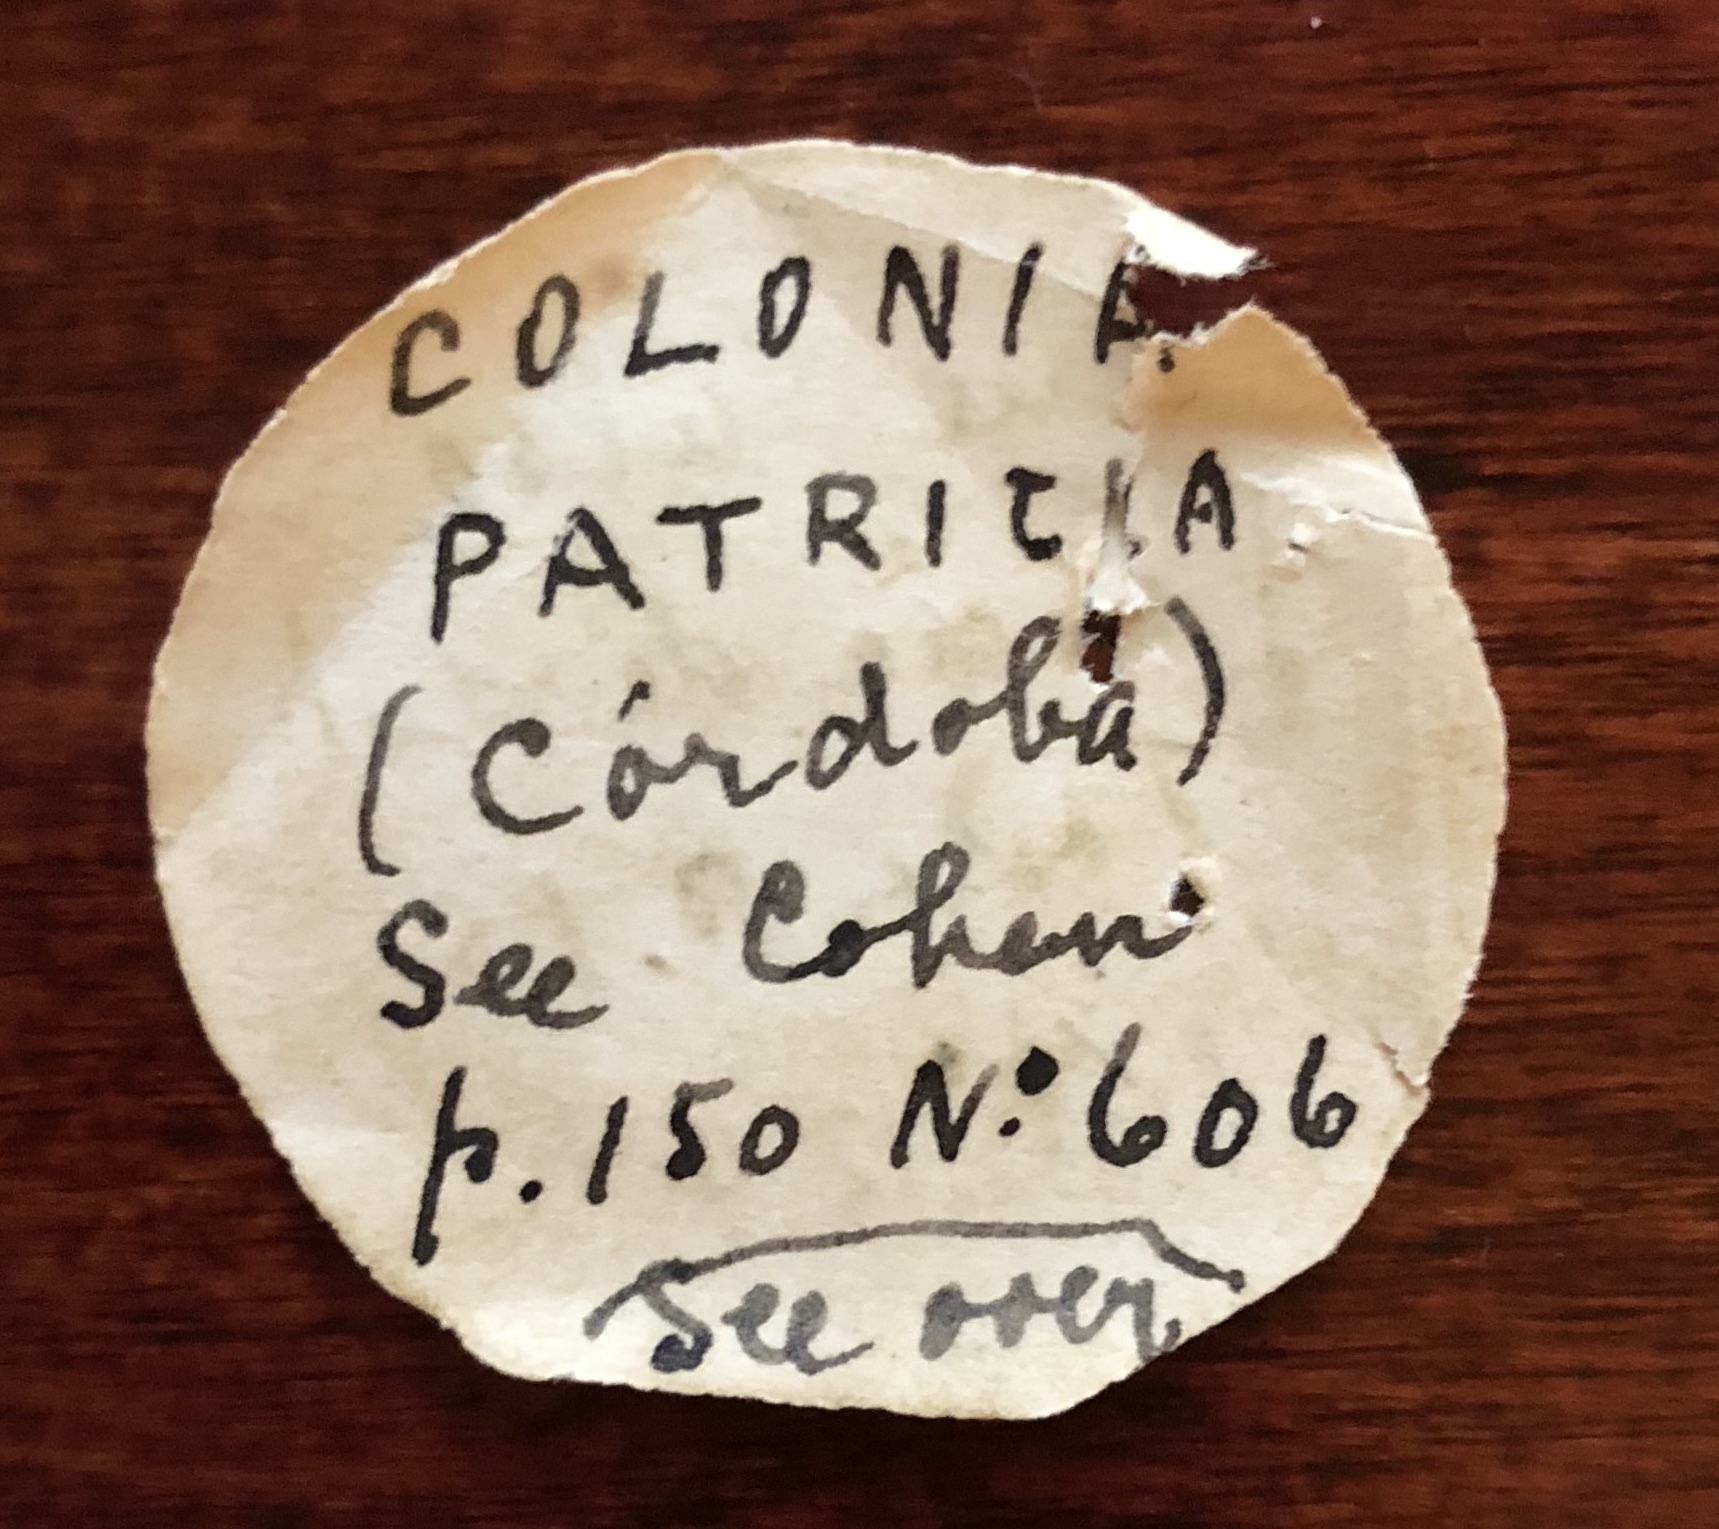 COLONIA
PATRICIA
(Córdoba)
See Cohen
p. 150 Nº 606
See over